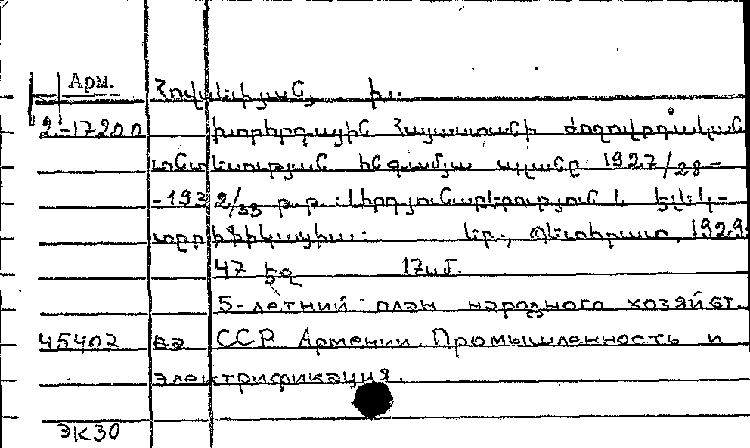 Арм.
Հովսեփյան, Խ.
2-17200 Խորհրդային Հայաստանի ժողովրդական
տնտեսության հնգամյա պլանը 1927/28-
-1932/33 թ.թ. Արդյունաբերություն և էլեկ-
տրիֆիկացիա. Եր., Պետհրատ, 1929.
47 էջ 17 սմ.
5-летний план народного хозяйст-
45402 ва ССР Армении. Промышленность и
электрификация.
ЭК30